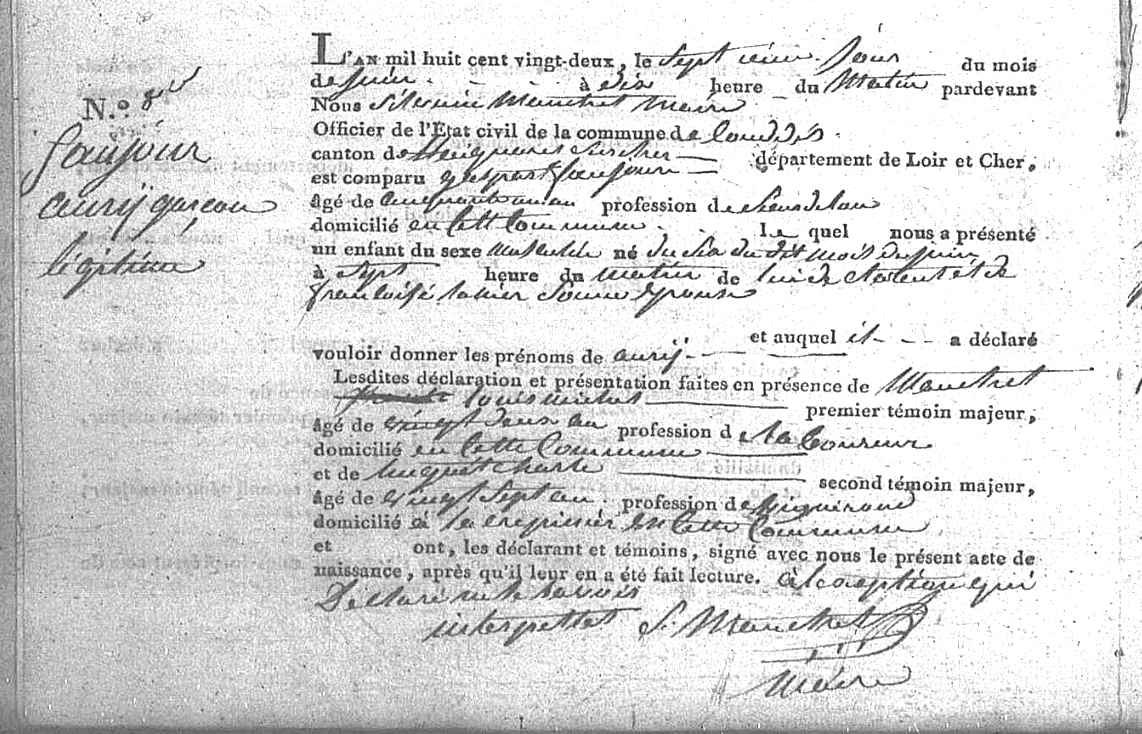 N.º 8
faujour
aurij garcon
légitime
L'AN mil huit cent vingt-deux, le Sept ième Jour du mois
de Juin à dix heure du Matin pardevant
Nous Silvain Manchet Maire
Officier de l'Etat civil de la commune de
canton de département de Loir et Cher,
est comparu gaspart faujour
âgé de cinquante un an profession de
domicilié en Cette Commune Le quel nous a présenté
un enfant du sexe masculin né du Six du dit mois de juin
à Sept heure du matin de lui de clarent et de
françoise Son epouse
et auquel il a déclaré
vouloir donner les prénoms de aurij
Lesdites déclaration et présentation faites en présence de Manchet
louis premier témoin majeur,
âgé de vingt deux an profession de laboureur
domicilié en Cette Commune
et de second témoin majeur,
âgé de vingt Sept an profession de vigneron
domicilié à en Cette Commune
et ont, les déclarant et témoins, signé avec nous le présent acte de
naissance, après qu'il leur en a été fait lecture. à lexception qui
Declare ne le Savoir
interpellet S. Manchet
Maire